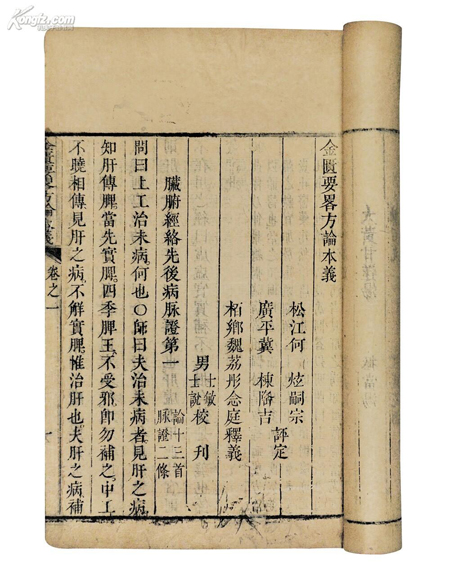 Kongfz.com
金匱要畧方論本義
松江何　炫嗣宗
廣平冀　棟隆吉
評定
柏鄉魏荔彤念庭釋義
男
士敏
士說
校刊
臟腑經絡先後病脉證第一
論十三首
脉證二條
問曰上工治未病何也○師曰夫治未病者見肝之病
知肝傳脾當先實脾四季脾王不受邪卽勿補之中工
不曉相傳見肝之病不解實脾惟治肝也夫肝之病補
金匱要畧方論本義
卷之一